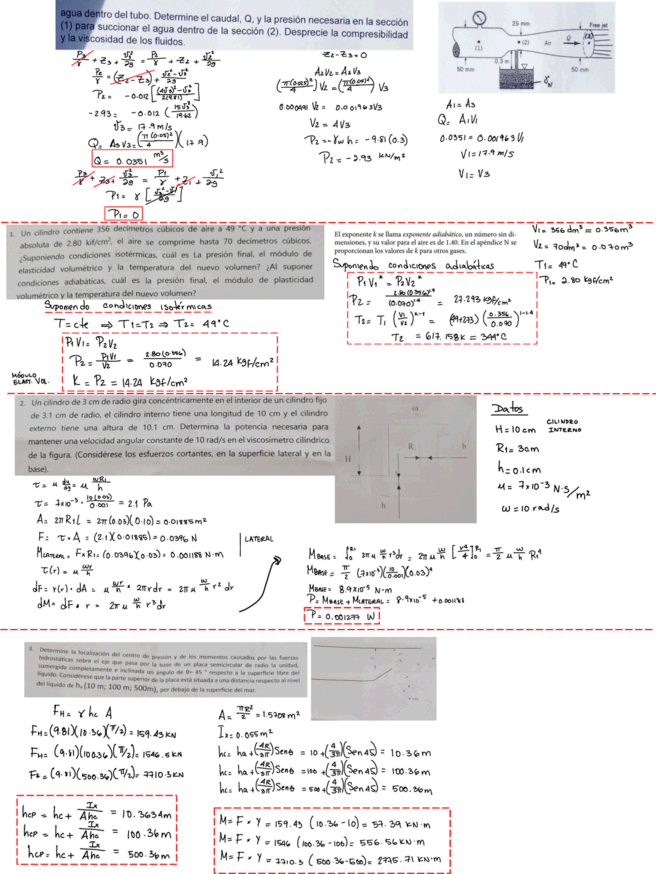 agua dentro del tubo. Determine el caudal, Q, y la presión necesaria en la sección
(1) para succionar el agua dentro de la sección (2). Desprecie la compresibilidad
y la viscosidad de los fluidos.
25 mm
Free jet
(1)
(2)
Air
Q
(3)
0.3 m
50 mm
50 mm
γw
P3/γ + Z3 + V3²/2g = P2/γ + Z2 + V2²/2g
P2/γ = (Z2 - Z3) + V3² - V2²/2g
P2 = -0.012 [(4V3)² - V3²/2(9.81)]
-2.93 = -0.012 (15V3²/19.62)
V3 = 17.9 m/s
Q = A3V3 = (π(0.05)²/4)(17.9)
Q = 0.0351 m³/s
P3/γ + Z3 + V3²/2g = P1/γ + Z1 + V1²/2g
P1 = γ [V3² - V1²/2g]
P1 = 0
Z2 - Z3 = 0
A2V2 = A3V3
(π(0.025)²/4) V2 = (π(0.05)²/4) V3
0.000491 V2 = 0.001963 V3
V2 = 4V3
P2 = -γw h = -9.81 (0.3)
P2 = -2.93 kN/m²
A1 = A3
Q = A1V1
0.0351 = 0.001963 V1
V1 = 17.9 m/s
V1 = V3
1. Un cilindro contiene 356 decímetros cúbicos de aire a 49 °C y a una presión
absoluta de 2.80 kif/cm², el aire se comprime hasta 70 decímetros cúbicos.
¿Suponiendo condiciones isotérmicas, cuál es La presión final, el módulo de
elasticidad volumétrico y la temperatura del nuevo volumen? ¿Al suponer
condiciones adiabáticas, cuál es La presión final, el módulo de plasticidad
volumétrico y la temperatura del nuevo volumen?
El exponente k se llama exponente adiabático, un número sin di-
mensiones, y su valor para el aire es de 1.40. En el apéndice N se
proporcionan los valores de k para otros gases.
V1 = 356 dm³ = 0.356m³
V2 = 70dm³ = 0.070m³
T1 = 49°C
P1 = 2.80 kgf/cm²
Suponendo condiciones isotérmicas
T = cte ⇒ T1 = T2 ⇒ T2 = 49°C
P1V1 = P2V2
P2 = P1V1/V2 = 2.80(0.356)/0.070 = 14.24 kgf/cm²
MÓDULO ELAST. VOL.
K = P2 = 14.24 kgf/cm²
Suponendo condiciones adiabáticas
P1V1^k = P2V2^k
P2 = 2.80(0.356)^1.4/(0.070)^1.4 = 27.293 kgf/cm²
T2 = T1 (V1/V2)^k-1 = (49+273) (0.356/0.070)^1-1.4
T2 = 617.158K = 344°C
2. Un cilindro de 3 cm de radio gira concéntricamente en el interior de un cilindro fijo
de 3.1 cm de radio, el cilindro interno tiene una longitud de 10 cm y el cilindro
externo tiene una altura de 10.1 cm. Determina la potencia necesaria para
mantener una velocidad angular constante de 10 rad/s en el viscosímetro cilíndrico
de la figura. (Considérese los esfuerzos cortantes, en la superficie lateral y en la
base).
ω
R
h
H
h
Datos
H = 10 cm CILINDRO INTERNO
R1 = 3cm
h = 0.1cm
μ = 7x10⁻³ N·S/m²
ω = 10 rad/s
τ = μ dv/dy = μ ωR1/h
τ = 7x10⁻³ · 10(0.03)/0.001 = 2.1 Pa
A = 2πR1L = 2π(0.03)(0.10) = 0.01885m²
F = τ · A = (2.1)(0.01885) = 0.0396 N
LATERAL
MLATERAL = F×R1 = (0.0396)(0.03) = 0.001188 N·m
τ(r) = μ ωr/h
dF = τ(r) · dA = μ ωr/h · 2πrdr = 2πμ ω/h r² dr
dM = dF × r = 2πμ ω/h r³dr
MBASE = ∫₀^R1 2πμ ω/h r³dr = 2πμ ω/h [r⁴/4]₀^R1 = π/2 μ ω/h R1⁴
MBASE = π/2 (7x10⁻³)(10/0.001)(0.03)⁴
MBASE = 8.9x10⁻⁵ N·m
P = MBASE + MLATERAL = 8.9x10⁻⁵ + 0.001188
P = 0.001277 W
3. Determine la localización del centro de presión y de los momentos causados, por las fuerzas
hidrostáticas sobre el eje que pasa por la base de un placa semicircular de radio la unidad,
sumergida completamente e inclinada un angulo de θ= 45 ° respecto a la superficie libre del
líquido. Considérese que la parte superior de la placa está situada a una distancia respecto al nivel
del líquido de h₀ (10 m; 100 m; 500m), por debajo de la superficie del mar.
FH = γ hc A
FH = (9.81)(10.36)(π/2) = 159.43 KN
FH = (9.81)(100.36)(π/2) = 1546.5 KN
FH = (9.81)(500.36)(π/2) = 7710.3 KN
A = πR²/2 = 1.5708 m²
Ix = 0.055m²
hc = ha + (4R/3π) Senθ = 10 + (4/3π)(Sen45) = 10.36 m
hc = ha + (4R/3π) Senθ = 100 + (4/3π)(Sen45) = 100.36 m
hc = ha + (4R/3π) Senθ = 500 + (4/3π)(Sen45) = 500.36m
hcp = hc + Ix/Ahc = 10.3634m
hcp = hc + Ix/Ahc = 100.36 m
hcp = hc + Ix/Ahc = 500.36 m
M = F × Y = 159.43 (10.36 - 10) = 57.39 KN·m
M = F × Y = 1546 (100.36 - 100) = 556.56 KN·m
M = F × Y = 7710.3 (500.36 - 500) = 2775.71 KN·m